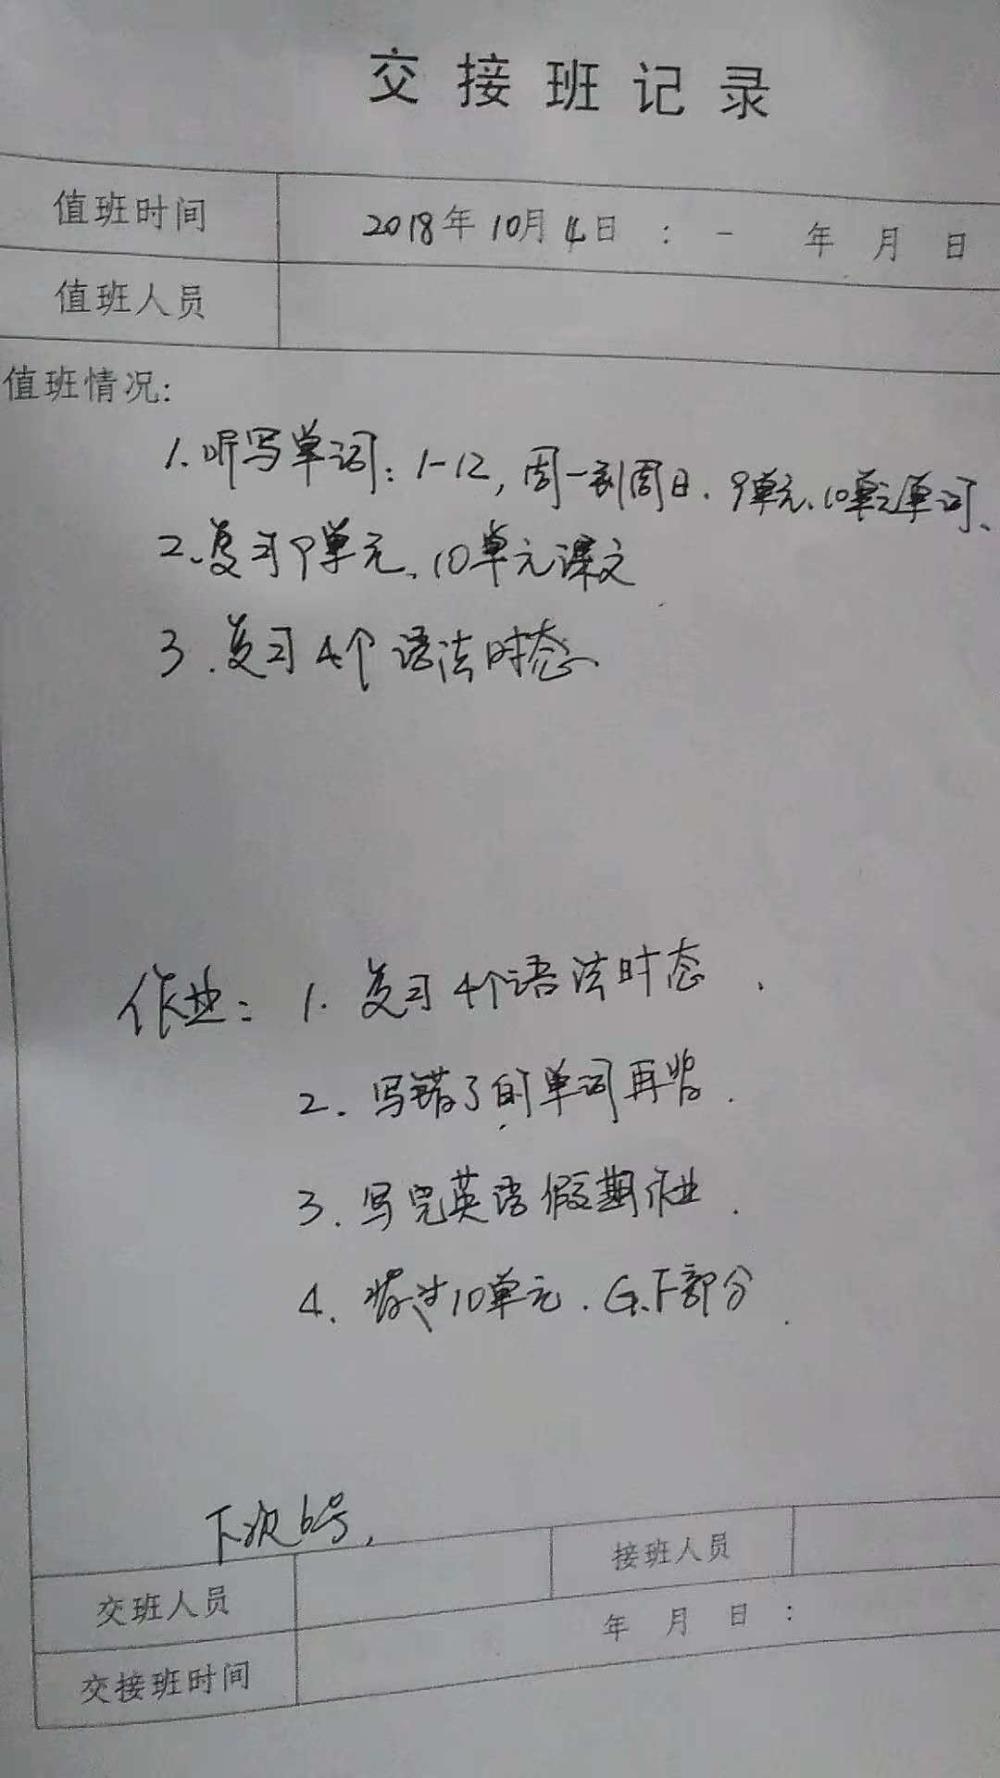 交接班记录
值班时间 2018年10月4日 : - 年 月 日
值班人员
值班情况:
1.听写单词: 1-12, 周一到周日. 9单元、10单元单词、
2、复习9单元、10单元课文
3.复习4个语法时态
作业: 1. 复习4个语法时态.
2. 写错了的单词再背.
3. 写完英语假期作业.
4. 10单元. G.F部分.
下次6号,
交班人员 接班人员
交接班时间 年 月 日 :